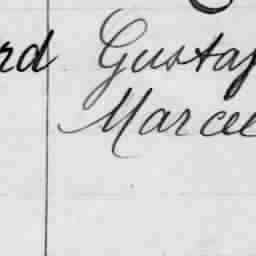 rd Gustaf
Marcel